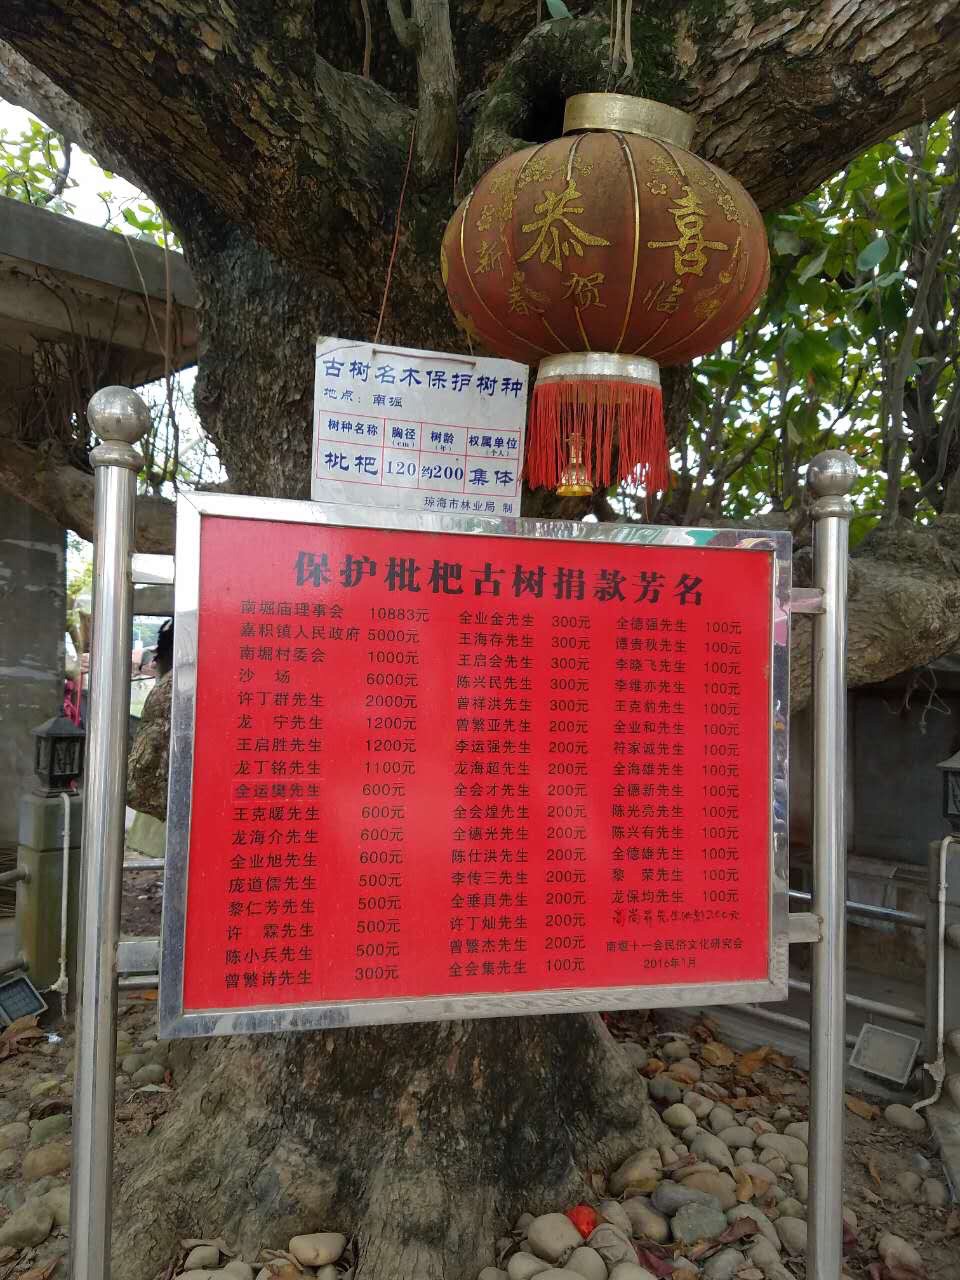 恭喜
新春贺临
古树名木保护树种
地点：南堀
树种名称 胸径（cm） 树龄（年） 权属单位（个人）
枇杷 120 约200 集体
琼海市林业局 制
保护枇杷古树捐款芳名
南堀庙理事会 10883元
嘉积镇人民政府 5000元
南堀村委会 1000元
沙 场 6000元
许丁群先生 2000元
龙 宁先生 1200元
王启胜先生 1200元
龙丁铭先生 1100元
全运樊先生 600元
王克暖先生 600元
龙海介先生 600元
全业旭先生 600元
庞道儒先生 500元
黎仁芳先生 500元
许 霖先生 500元
陈小兵先生 500元
曾繁诗先生 300元
全业金先生 300元
王海存先生 300元
王启会先生 300元
陈兴民先生 300元
曾祥洪先生 300元
曾繁亚先生 200元
李运强先生 200元
龙海超先生 200元
全会才先生 200元
全会煌先生 200元
全德光先生 200元
陈仕洪先生 200元
李传三先生 200元
全垂真先生 200元
许丁灿先生 200元
曾繁杰先生 200元
全会集先生 100元
全德强先生 100元
谭贵秋先生 100元
李晓飞先生 100元
李维亦先生 100元
王克豹先生 100元
全业和先生 100元
符家诚先生 100元
全海雄先生 100元
全德新先生 100元
陈光亮先生 100元
陈兴有先生 100元
全德雄先生 100元
黎 荣先生 100元
龙保均先生 100元
先生 200元
南堀十一会民俗文化研究会
2016年1月